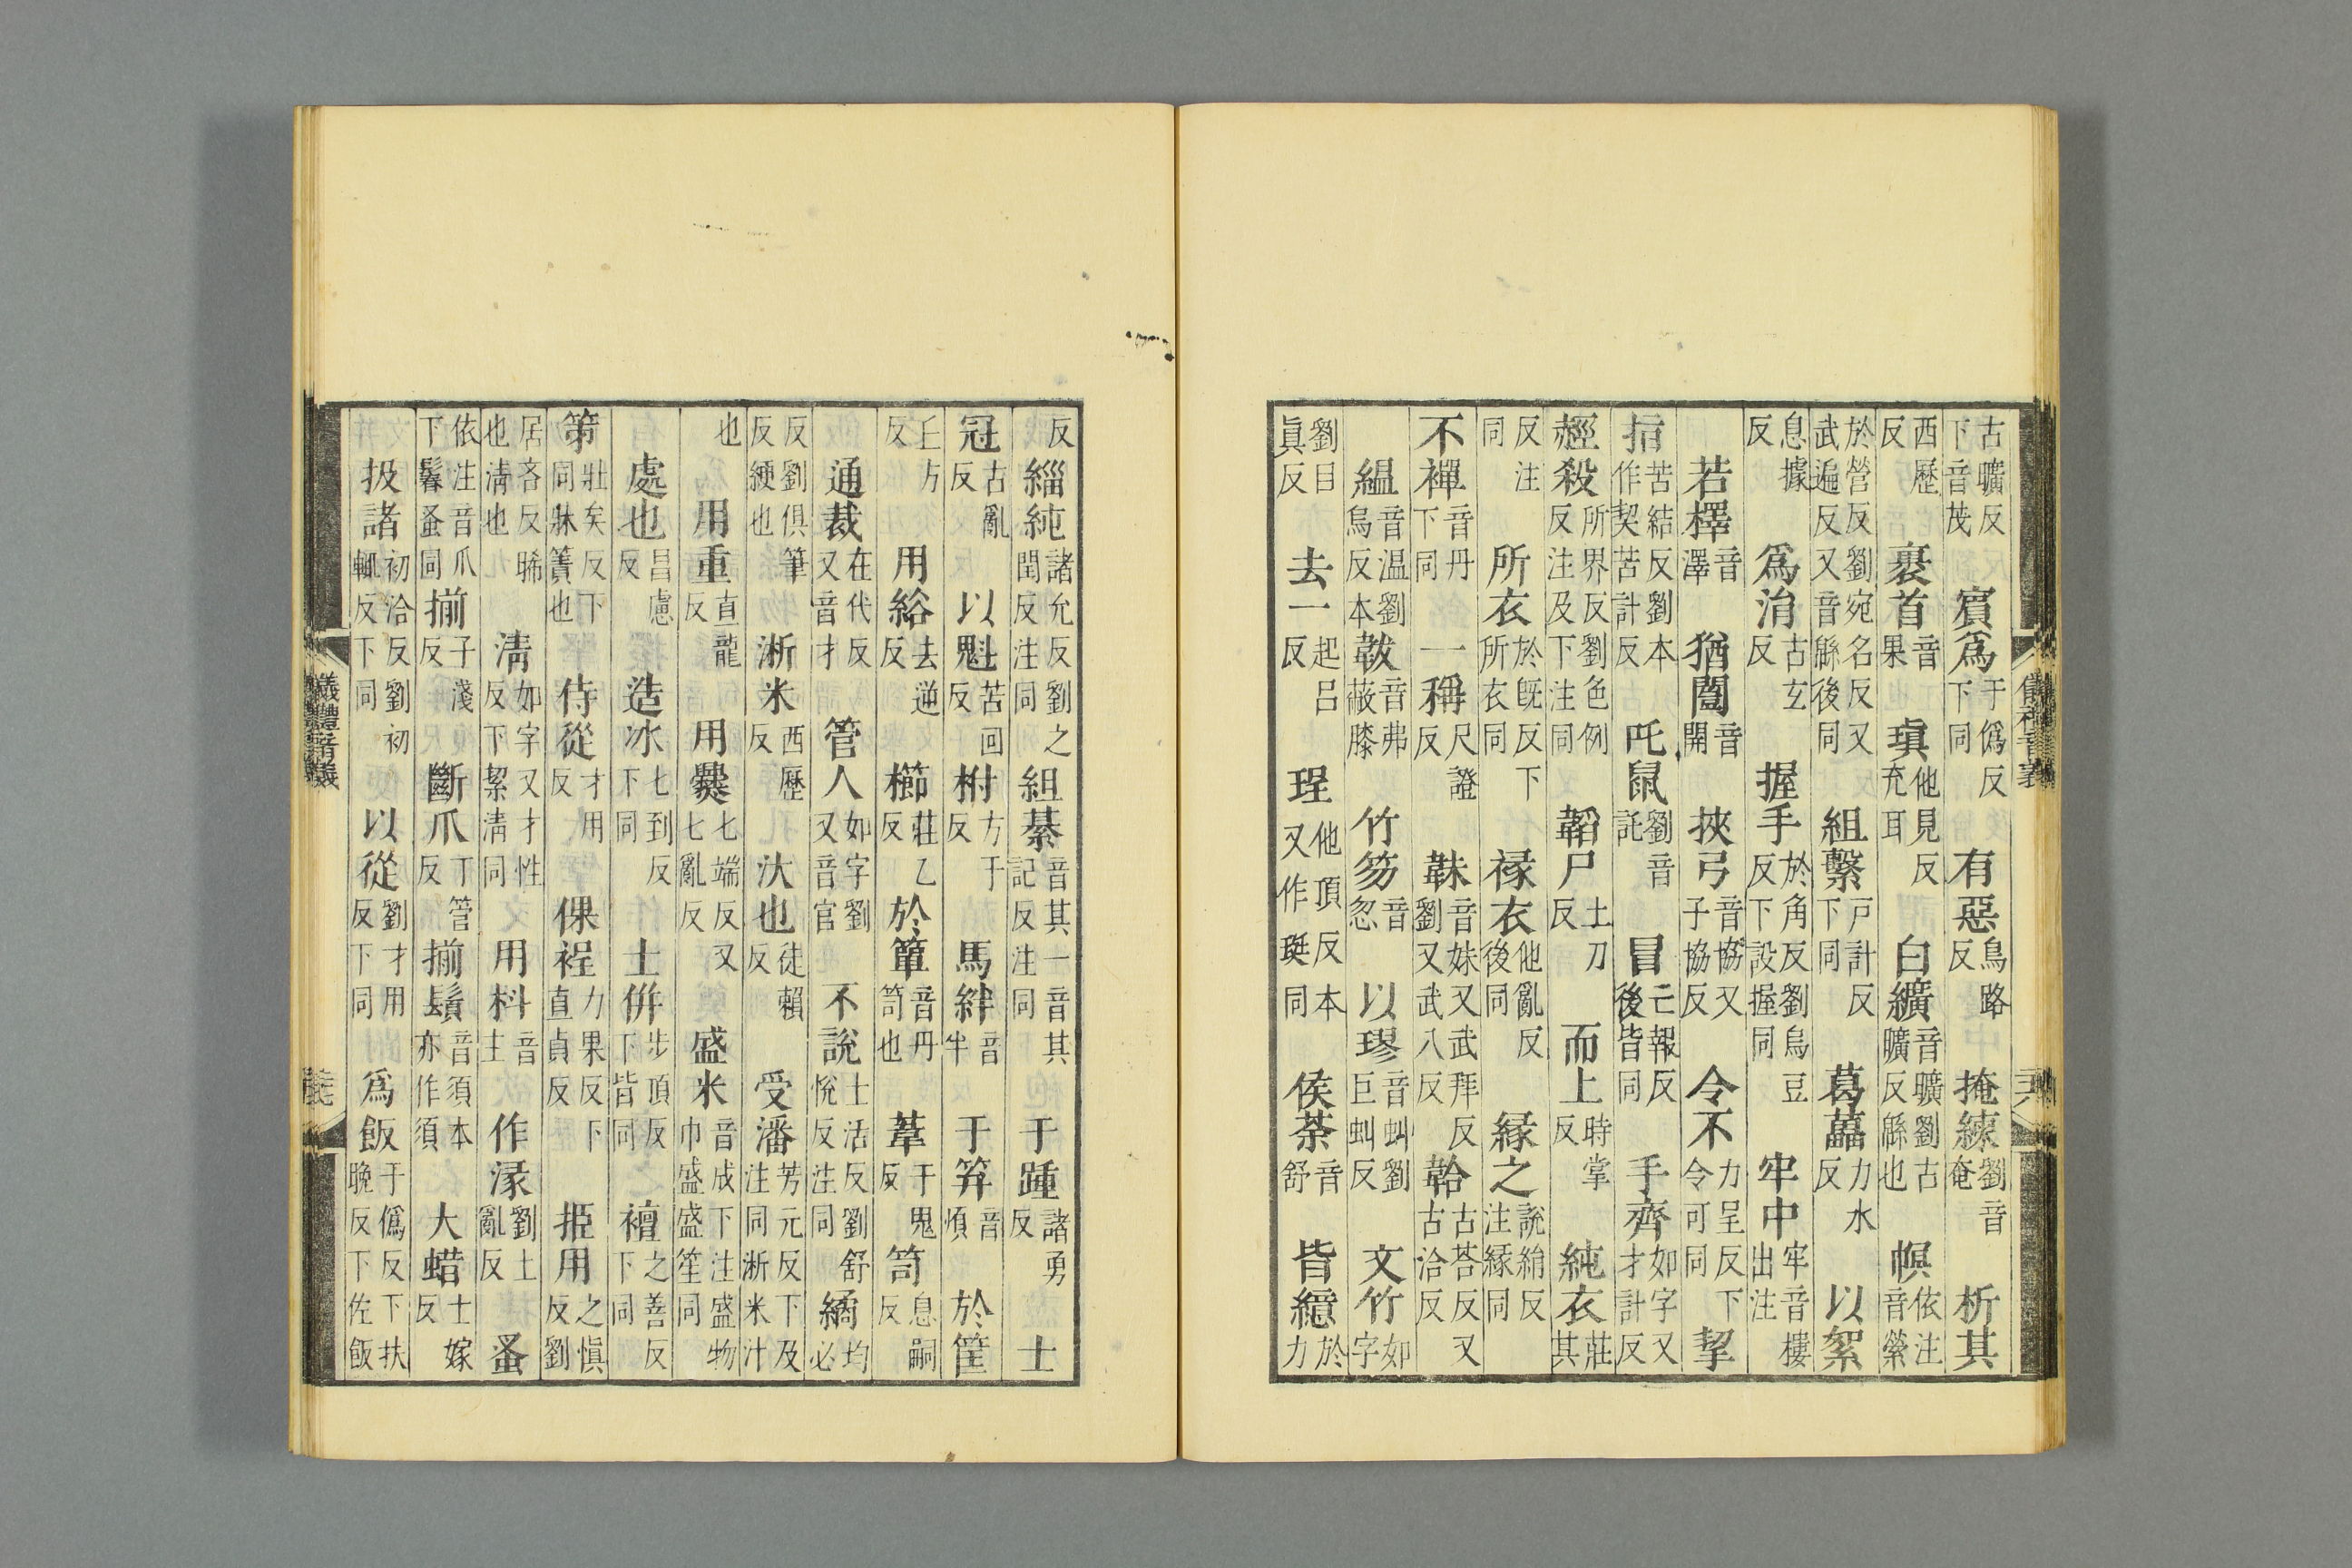 古曠反下音茂 賔爲于僞反下同 有惡烏路反 掩練劉音奄 析其
西歷反 裹首音果 瑱他見反充耳 白纊音曠劉古曠反緜也 幎依注音縈
於營反劉宛名反又武遍反又音緜後同 組繫戸計反下同 葛藟力水反 以絮
息據反 爲涓古玄反 握手於角反劉烏豆反下設握同 牢中牢音樓出注
若檡音澤 猶闓音開 挾弓音協又子協反 令不力呈反下令可同 挈
指苦結反劉本作契苦計反 吒鼠劉音託 冒亡報反後皆同 手齊如字又才計反
經殺所界反劉色例反注及下注同 韜尸土刀反 而上時掌反 純衣莊其
反注同 所衣於既反下所衣同 褖衣他亂反後同 緣之說絹反注緣同
不襌音丹下同 一稱尺證反 韎音妹又武拜反劉又武八反 韐古荅反又古洽反
緼音温劉烏本反 韍音弗蔽膝 竹笏音忽 以璆音虯劉巨虯反 文竹如字
劉目眞反 去一起呂反 珵他頂反本又作珽同 侯荼音舒 皆繶於力
儀禮音義
反 緇純諸允反劉之閏反注同 組綦音其一音其記反注同 于踵諸勇反 士
冠古亂反 以魁苦回反 柎方于反 馬絆音半 于笲音煩 於筐
丘方反 用綌去逆反 櫛莊乙反 於簞音丹笥也 葦于鬼反 笥息嗣反
通裁在代反又音才 管人如字劉又音官 不說土活反劉舒悅反注同 繘均必
反劉俱筆反綆也 淅米西歷反 汏也徒賴反 受潘芳元反下及注同淅米汁
也 用重直龍反 用爨七端反又七亂反 盛米音成下注盛物巾盛盛笙同
處也昌慮反 造冰七到反下同 士併步頂反下皆同 襢之善反下同
笫壯矣反下同牀簀也 侍從才用反 倮裎力果反下直貞反 挋用之愼反劉
居吝反晞也清也 清如字又才性反下絜清同 用枓音主 作湪劉土亂反 蚤
依注音爪下鬊蚤同 揃子淺反 斷爪丁管反 揃鬚音須本亦作須 大蜡士嫁反
扱諸初洽反劉初輒反下同 以從劉才用反下同 爲飯于僞反下扶晚反下佐飯
儀禮音義